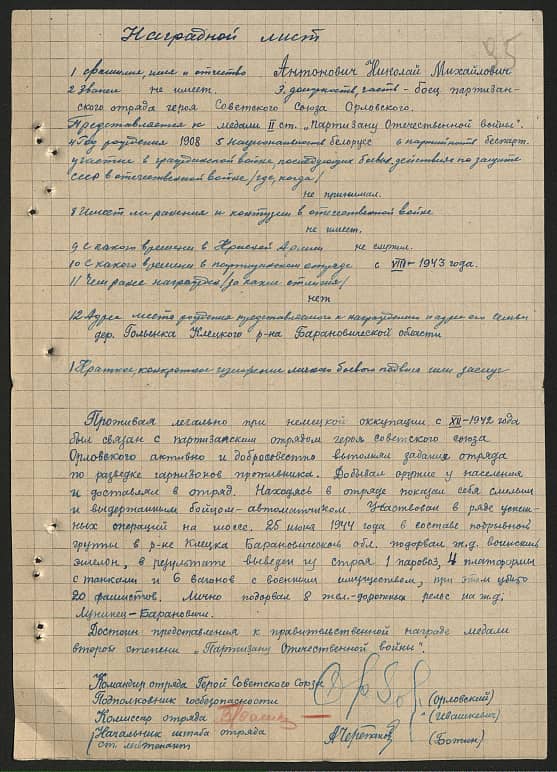 Наградной лист
95
1 фамилия, имя и отчество Антонович Николай Михайлович
2 Звание не имеет. 3 должность, часть - боец партизан-
ского отряда героя Советского Союза Орловского.
Представляется к медали II ст. „Партизану Отечественной войны".
4 Год рождения 1908 5 Национальность белорус 6 партийность беспарт.
участие в гражданской войне, последующих боевых действиях по защите
СССР в отечественной войне /где, когда/
не принимал.
8 Имеет ли ранения и контузии в отечественной войне
не имеет.
9 С какого времени в Красной Армии не служил.
10 С какого времени в партизанском отряде с VIII-1943 года.
11 Чем ранее награжден /за какие отличия/
нет
12 Адрес места рождения представляемого к награждению и адрес его семьи
дер. Голынка Клецкого р-на Барановической области
1 Краткое, конкретное изложение личного боевого подвига или заслуг
Проживая легально при немецкой оккупации с XII-1942 года
был связан с партизанским отрядом героя советского союза
Орловского активно и добросовестно выполнял задания отряда
по разведке гарнизонов противника. Добывал оружие у населения
и доставлял в отряд. Находясь в отряде показал себя смелым
и выдержанным бойцом-автоматчиком. Участвовал в ряде успеш-
ных операций на шоссе. 25 июня 1944 года в составе подрывной
группы в р-не Клецка Барановической обл. подорвал ж.д. воинский
эшелон, в результате выведен из строя 1 паровоз, 4 платформы
с танками и 6 вагонов с военным имуществом, при этом убито
20 фашистов. Лично подорвал 8 жел-дорожных рельс на ж.д.
Лунинец-Барановичи.
Достоин представления к правительственной награде медали
второй степени „Партизану Отечественной войны".
Командир отряда Герой Советского Союза
Подполковник госбезопасности (Орловский)
Комиссар отряда (Ивашкевич)
Начальник штаба отряда
ст. лейтенант (Ботин)